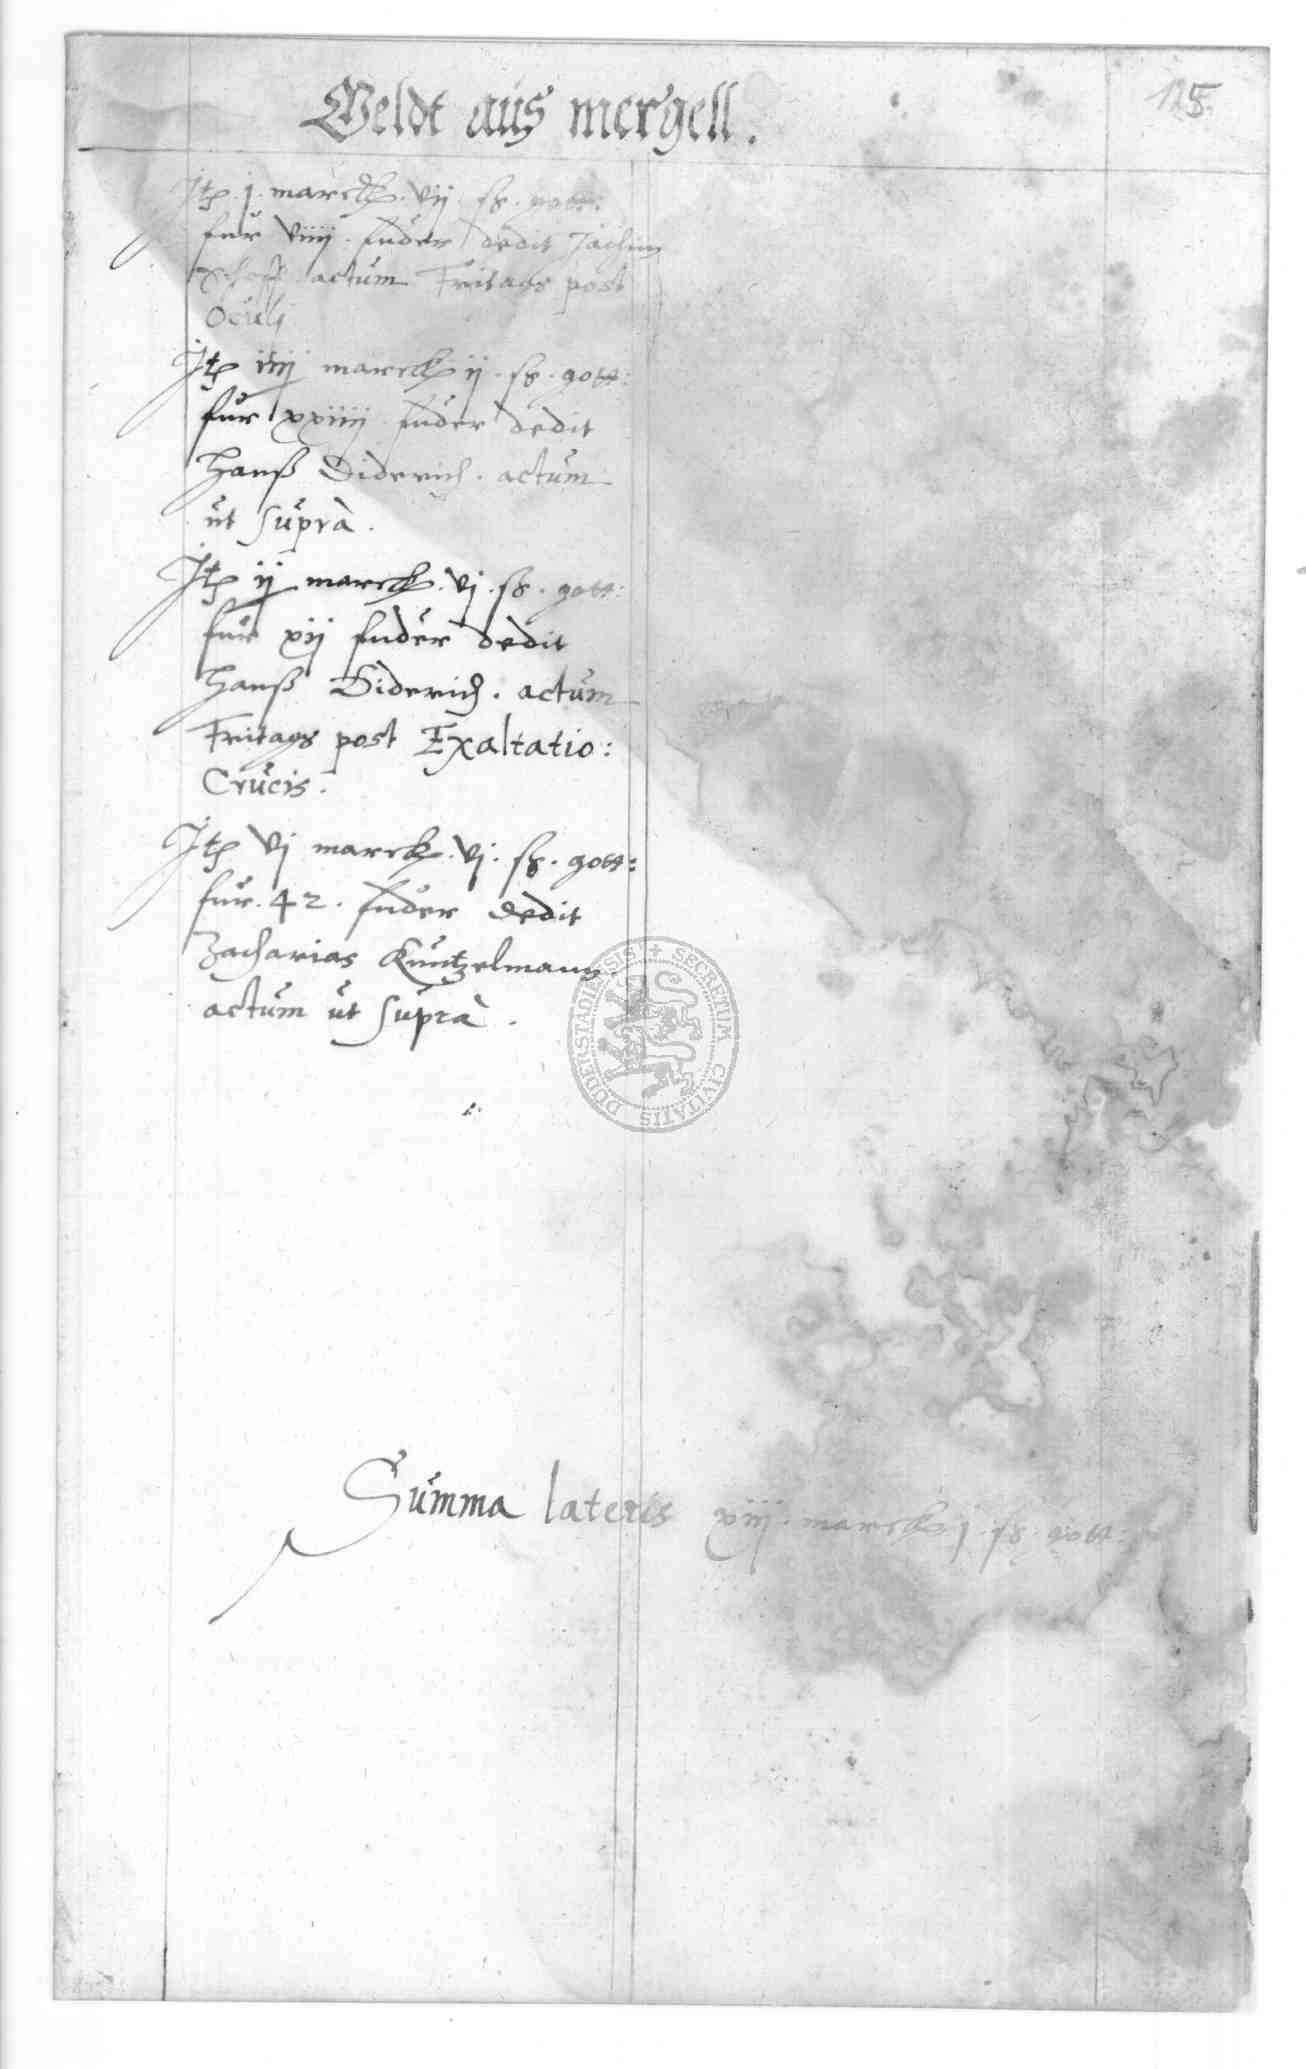 Geldt aus mergell.
125.
Jtz j marck vij ß gott:
fur viiij fuder dedit Jachim
actum Fritags post
Oculj
Jtz iiij marck ij ß gott:
fur xxiiij fuder dedit
Hanß Diderich. actum
ut supra.
Jtz ij marck vj ß gott:
fur xij fuder dedit
Hanß Diderich. actum
Fritags post Exaltatio:
Crucis.
Jtz vj marck vj ß gott:
fur 42. fuder dedit
Zacharias Kuntzelmann.
actum ut supra.
SECRETUM CIVITATIS DUDERSTADIENSIS
Summa lateris xiij marck j ß gott: